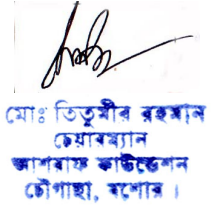 মোঃ তিতুমীর রহমান
চেয়ারম্যান
আশরাফ ফাউন্ডেশন
চৌগাছা, যশোর ।